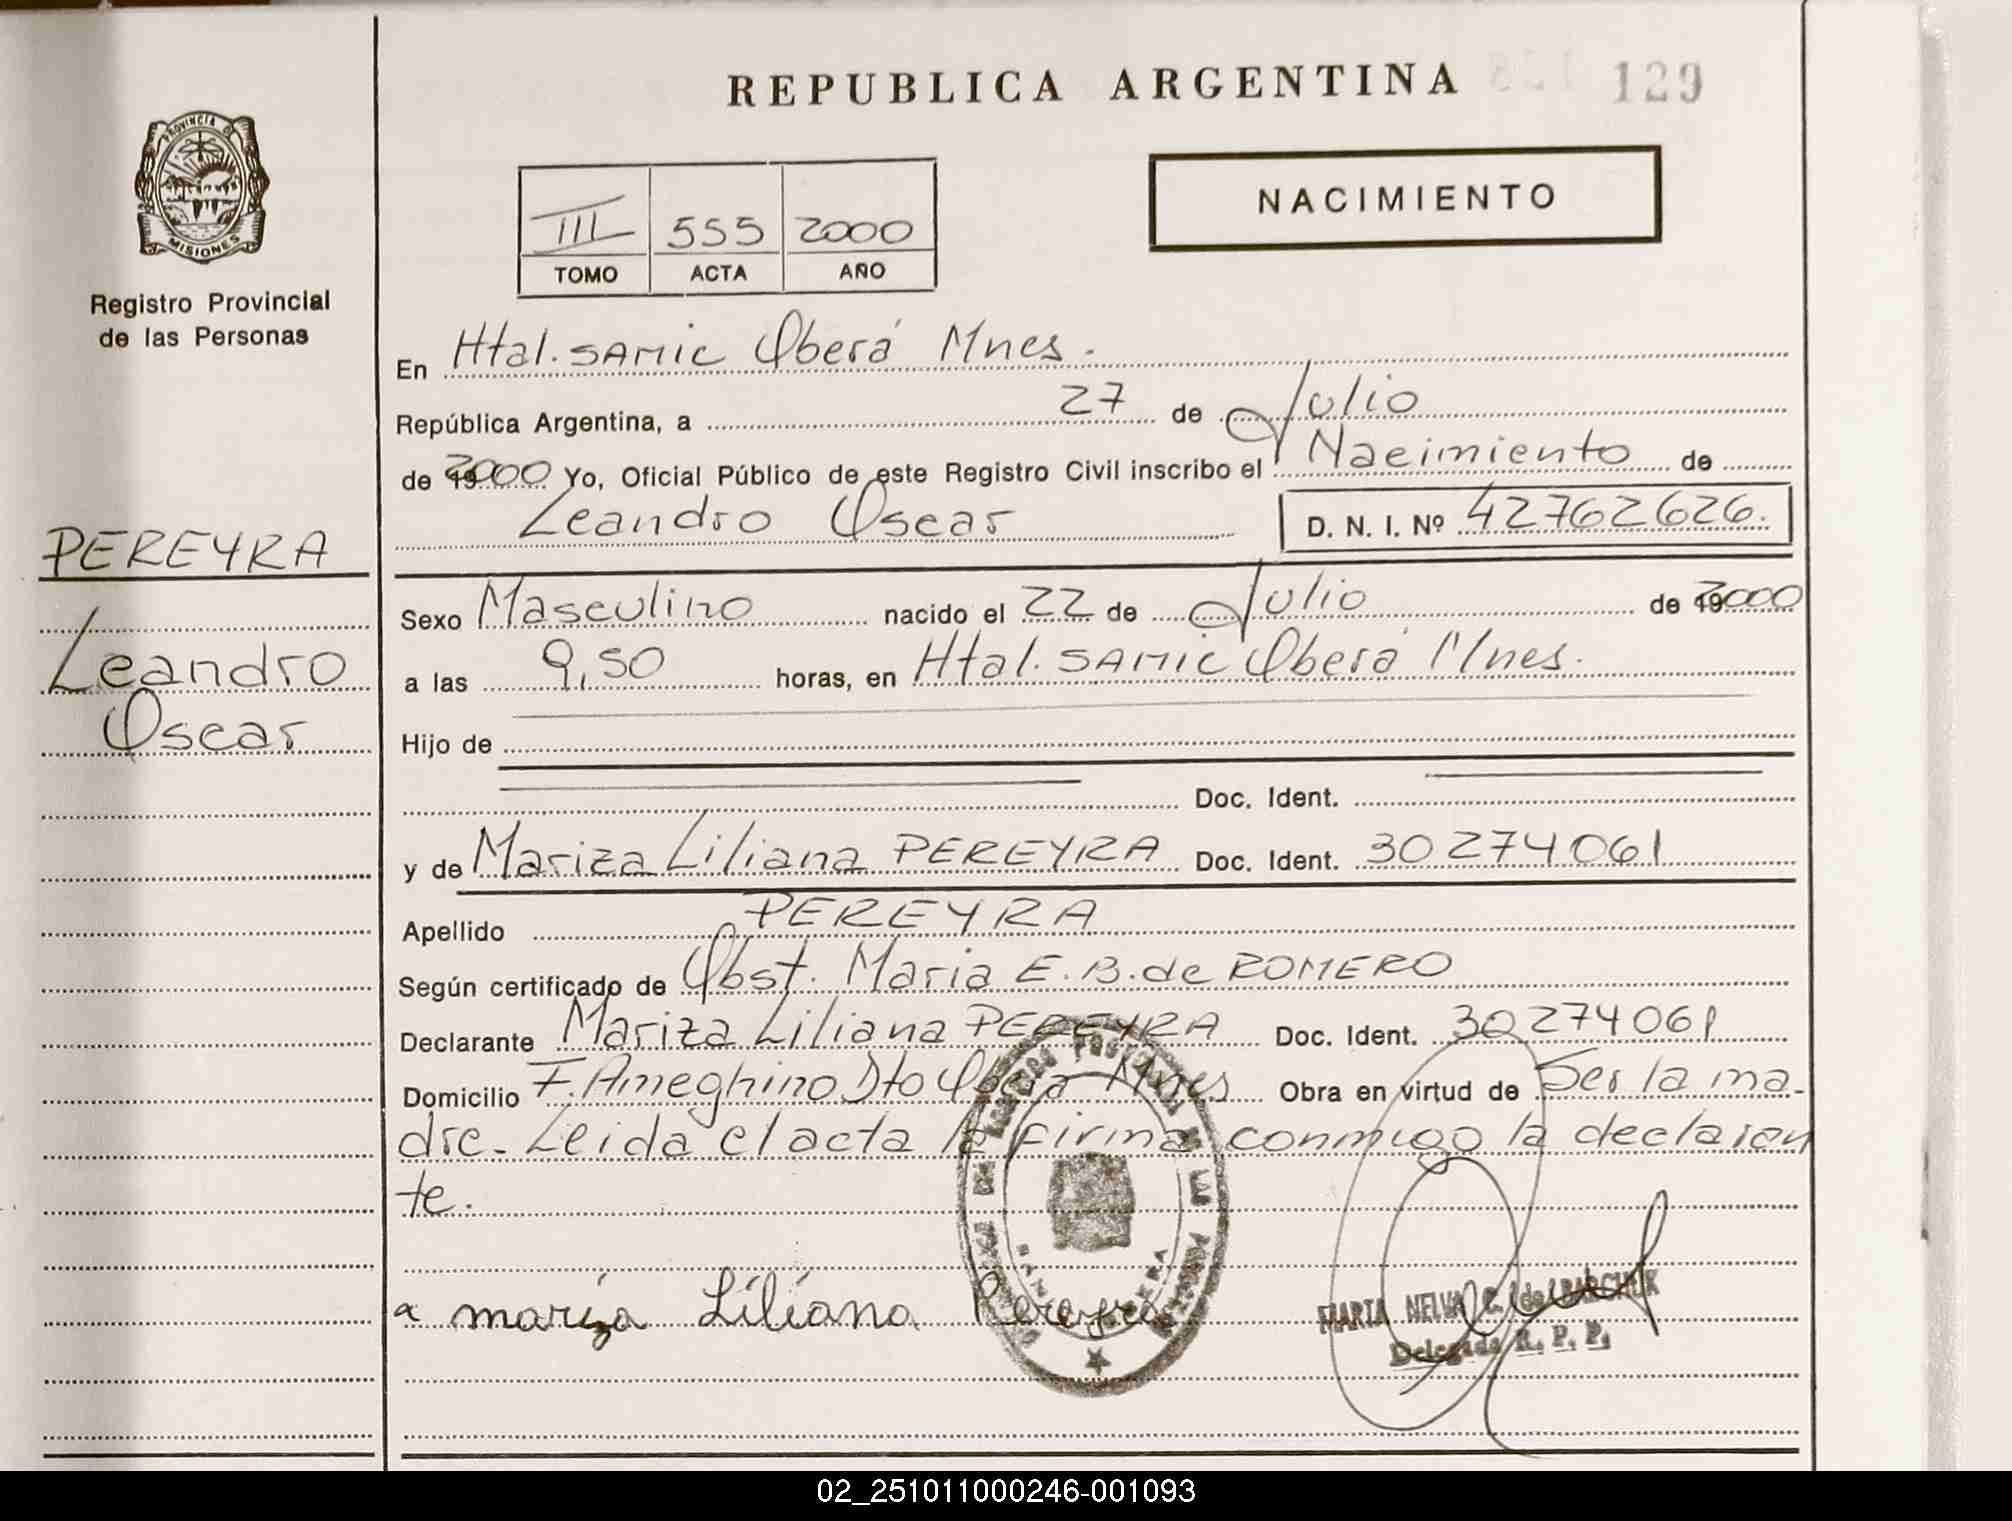 REPUBLICA ARGENTINA 129
PROVINCIA DE
MISIONES
Registro Provincial
de las Personas
NACIMIENTO
III 555 2000
TOMO ACTA AÑO
En Htal. SAMIC Oberá Mnes.
República Argentina, a 27 de Julio
de 2000 Yo, Oficial Público de este Registro Civil inscribo el Nacimiento de
Leandro Oscar D. N. I. Nº 42762626.
PEREYRA
Leandro
Oscar
Sexo Masculino nacido el 22 de Julio de 2000
a las 9,50 horas, en Htal. SAMIC Oberá Mnes.
Hijo de
Doc. Ident.
y de Mariza Liliana PEREYRA Doc. Ident. 30274061
Apellido PEREYRA
Según certificado de Obst. Maria E. B. de ROMERO
Declarante Mariza Liliana PEREYRA Doc. Ident. 30274061
Domicilio F. Ameghino Dto Oberá Mnes Obra en virtud de Ser la ma-
dre. Leida el acta la firma conmigo la declaran
te.
mariza Liliana Pereyra
MARIA NELVA C. de
Delegada R. P. P.
02_251011000246-001093